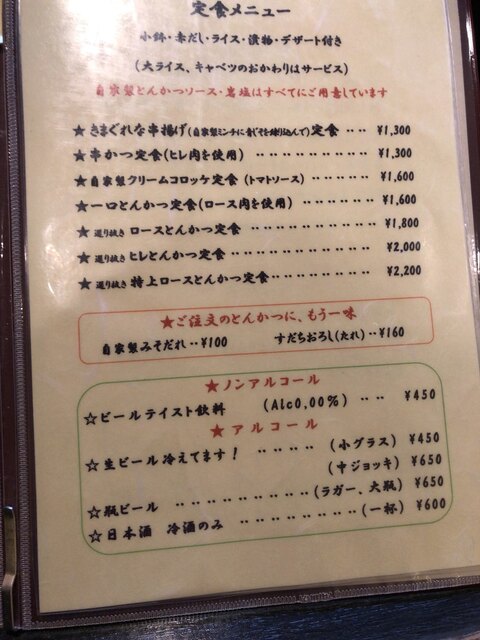 定食メニュー
小鉢・赤だし・ライス・漬物・デザート付き
(大ライス、キャベツのおかわりはサービス)
自家製とんかつソース・岩塩はすべてにご用意しています
★きまぐれな串揚げ(自家製ミンチに青じそを練り込んで)定食 ‥‥ ¥1,300
★串かつ定食(ヒレ肉を使用) ‥‥‥‥‥‥‥‥ ¥1,300
★自家製クリームコロッケ定食 (トマトソース) ‥‥‥‥ ¥1,600
★一口とんかつ定食(ロース肉を使用) ‥‥‥‥‥‥ ¥1,600
★選り抜き ロースとんかつ定食 ‥‥‥‥‥‥‥‥ ¥1,800
★選り抜き ヒレとんかつ定食 ‥‥‥‥‥‥‥‥ ¥2,000
★選り抜き 特上ロースとんかつ定食‥‥‥‥‥‥ ¥2,200
★ご注文のとんかつに、もう一味
自家製みそだれ‥¥100 すだちおろし(たれ)‥¥160
★ノンアルコール
☆ビールテイスト飲料 (Alc0,00%) ‥‥ ¥450
★アルコール
☆生ビール冷えてます! ‥‥‥‥ (小グラス) ¥450
(中ジョッキ) ¥650
☆瓶ビール ‥‥‥‥‥‥‥‥(ラガー、大瓶) ¥650
☆日本酒 冷酒のみ ‥‥‥‥‥‥‥‥(一杯) ¥600